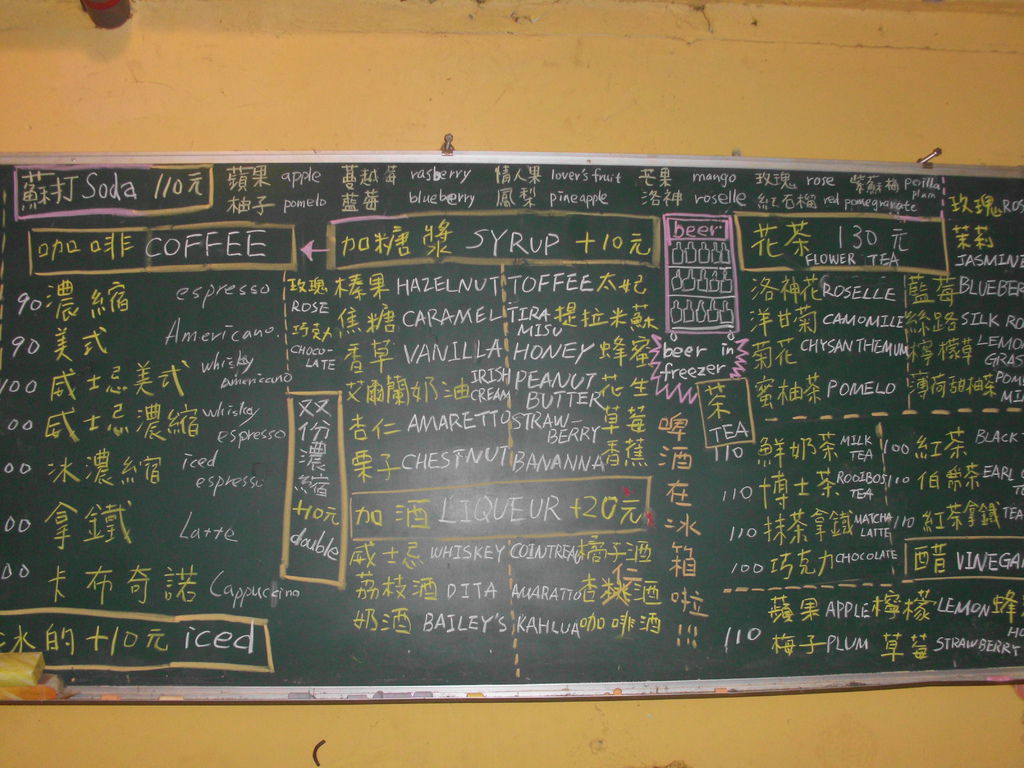 蘇打 Soda 110元
蘋果 apple 蔓越莓 rasberry 情人果 lover's fruit 芒果 mango 玫瑰 rose 紫蘇梅 perilla plum
柚子 pomelo 藍莓 blueberry 鳳梨 pineapple 洛神 roselle 紅石榴 red pomegranate
咖啡 COFFEE
90 濃縮 espresso
90 美式 Americano.
100 威士忌美式 whisky Americano
00 威士忌濃縮 whiskey espresso
00 冰濃縮 iced espresso
00 拿鐵 Latte
00 卡布奇諾 Cappuccino
冰的 +10元 iced
加糖漿 SYRUP +10元
玫瑰 ROSE
巧克力 CHOCO-LATE
榛果 HAZELNUT TOFFEE 太妃
焦糖 CARAMEL TIRA MISU 提拉米蘇
香草 VANILLA HONEY 蜂蜜
艾爾蘭奶油 IRISH CREAM PEANUT BUTTER 花生
杏仁 AMARETTO STRAW-BERRY 草莓
栗子 CHESTNUT BANANNA 香蕉
双份濃縮 +10元 double
加酒 LIQUEUR +20元
威士忌 WHISKEY COINTREAU 橘子酒
荔枝酒 DITA AMARATTO 杏仁酒
奶酒 BAILEY'S KAHLUA 咖啡酒
beer
beer in freezer
啤酒在冰箱啦!!!
花茶 130元
FLOWER TEA
玫瑰 ROS
茉莉 JASMINE
洛神花 ROSELLE 藍莓 BLUEBER
洋甘菊 CAMOMILE 絲路 SILK RO
菊花 CHYSANTHEMUM 檸檬草 LEMON GRAS
蜜柚茶 POMELO 薄荷甜柚茶 POM MIN
茶 TEA
110 鮮奶茶 MILK TEA 100 紅茶 BLACK
110 博士茶 ROOIBOS TEA 110 伯爵茶 EARL G TEA
110 抹茶拿鐵 MATCHA LATTE 110 紅茶拿鐵 TEA
100 巧克力 CHOCOLATE
醋 VINEGAR
110
蘋果 APPLE 檸檬 LEMON 蜂 HO
梅子 PLUM 草莓 STRAWBERRY